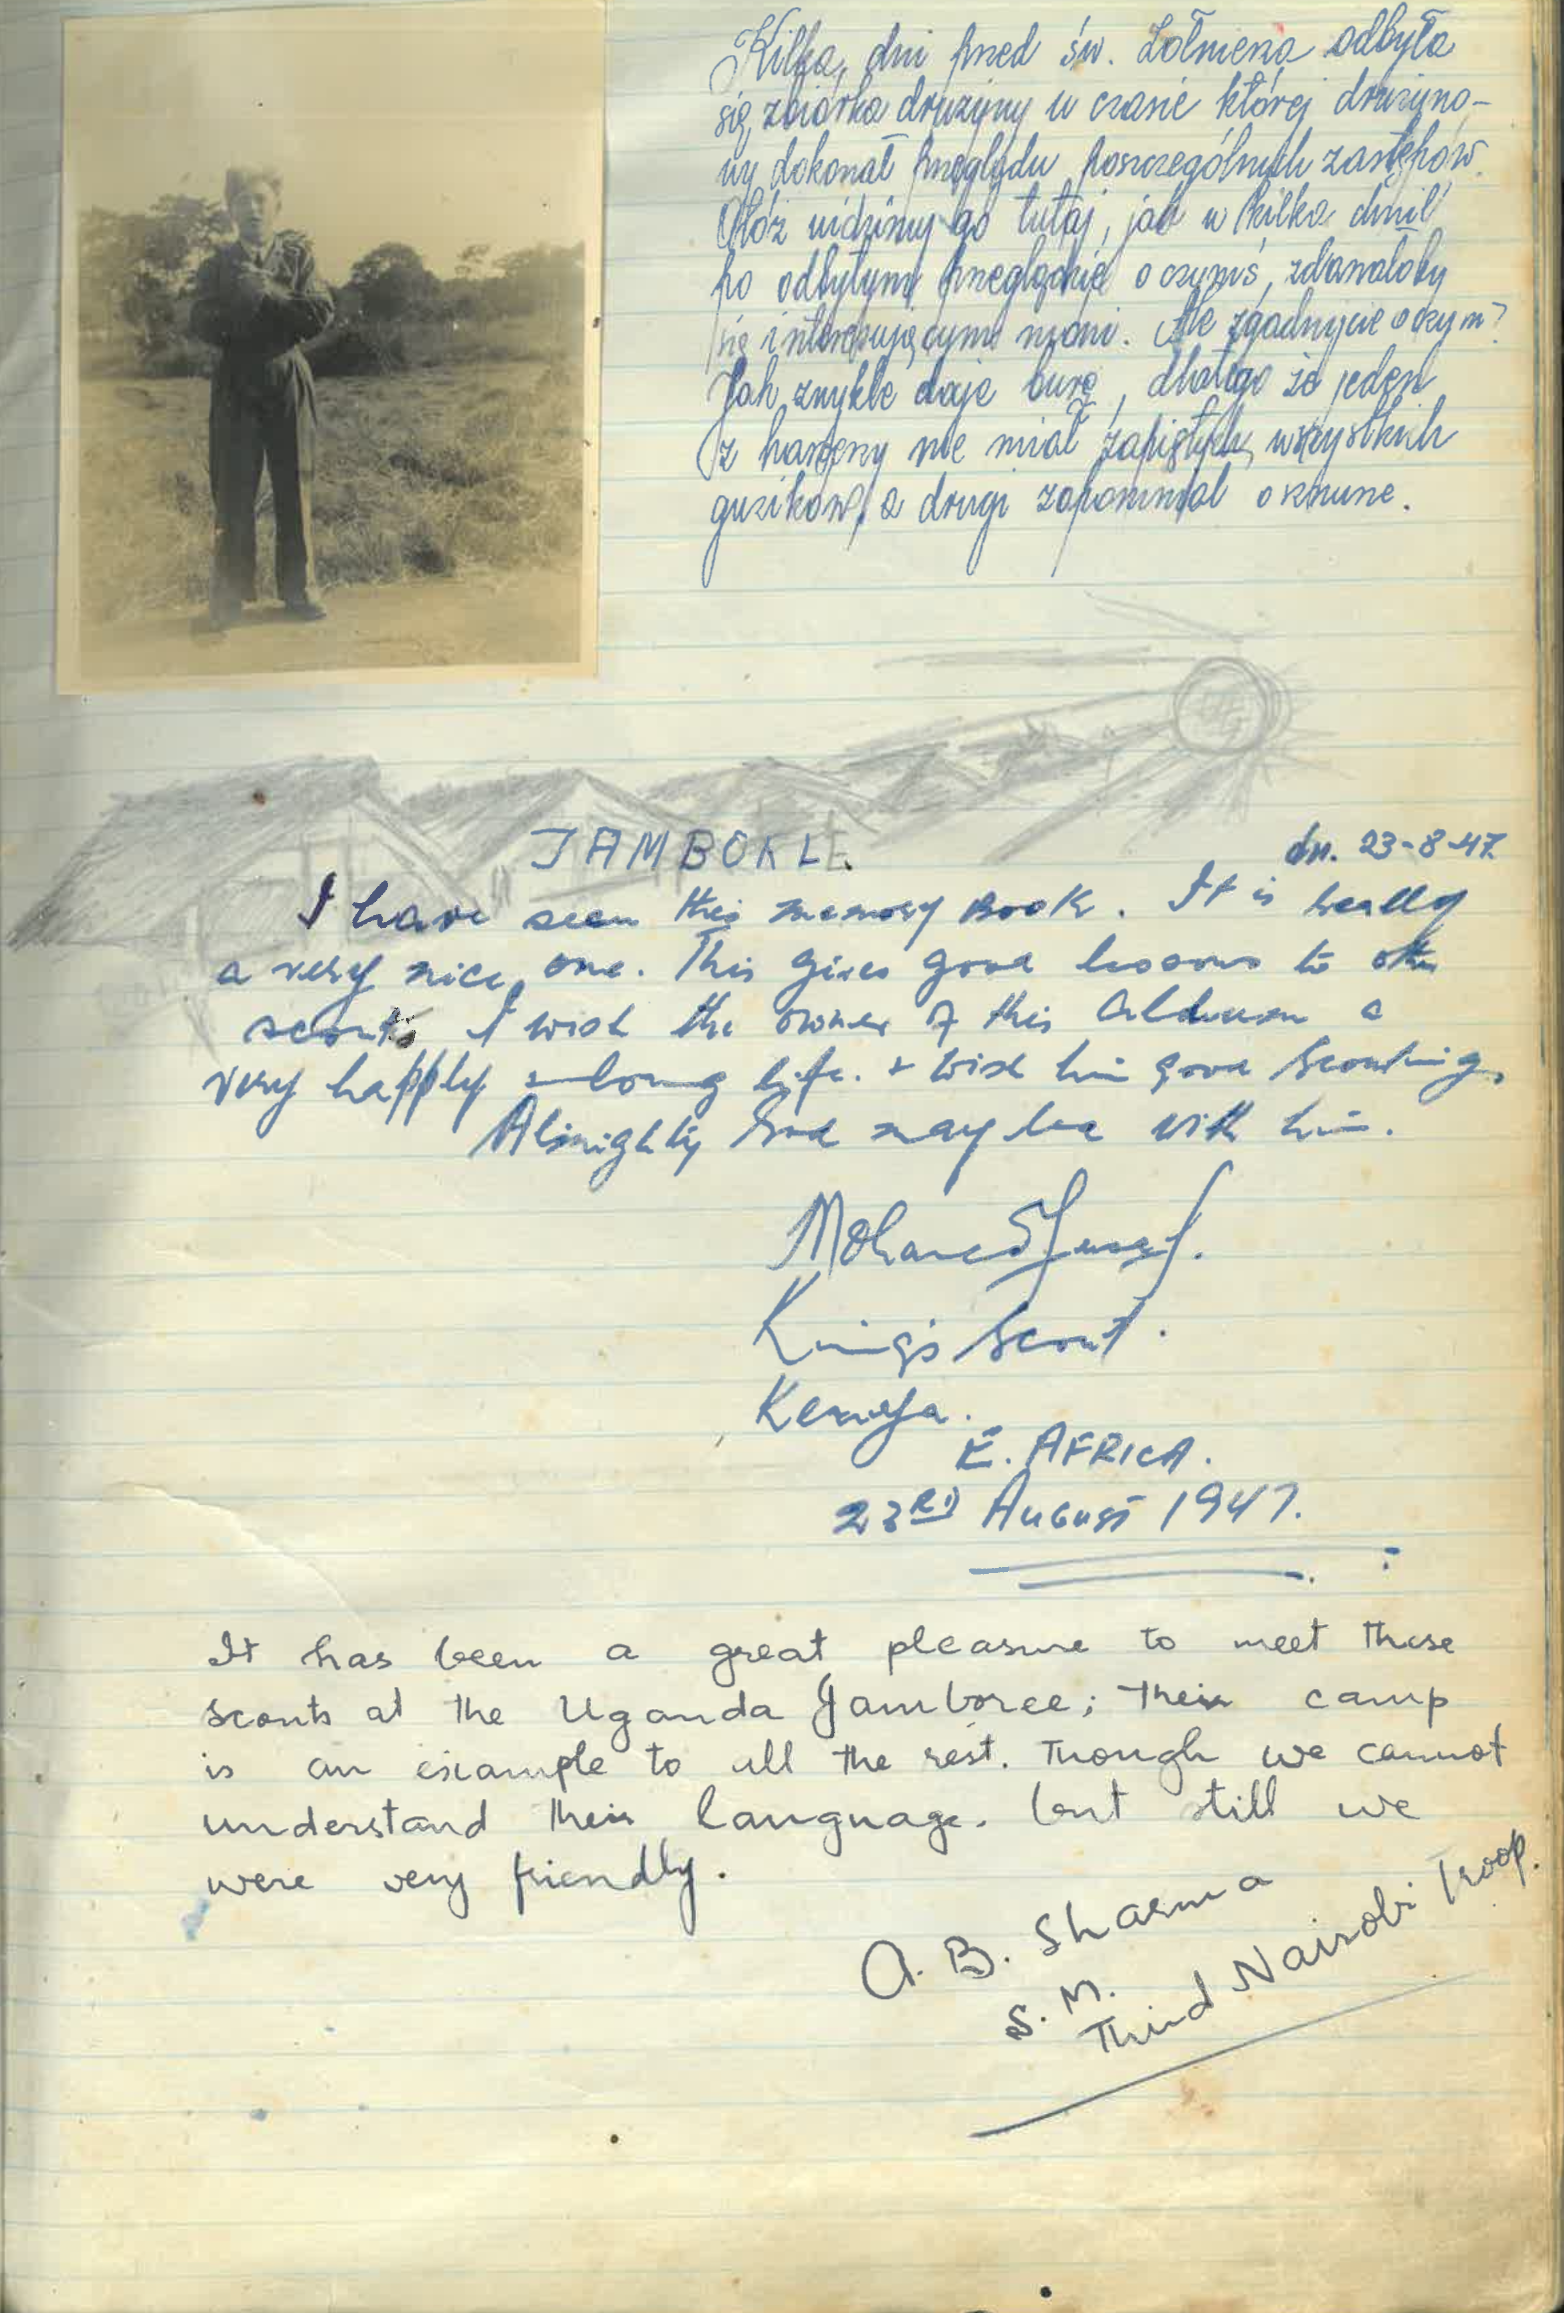 Kilka dni przed św. Żołnierza odbyła
się zbiórka drużyny w czasie której drużyno-
wy dokonał przeglądu poszczególnych zastępów.
Otóż widzimy go tutaj, jak w kilka chwil
po odbytym przeglądzie o czymś, zdawałoby
się interesującym mówi. Ale zgadnijcie o czym?
Jak zwykle daje burę, dlatego że jeden
z harcerzy nie miał zapiętych wszystkich
guzików, a drugi zapomniał o sznurze.
JAMBOKLE.
dn. 23-8-47.
I have seen this memory Book. It is really
a very nice one. This gives good lessons to other
scouts I wish the owner of this Album a
very happy & long life. & wish him good Scouting,
Almighty God may be with him.
Mohamed Yusuf.
King's Scout.
Kenya.
E. AFRICA.
23RD August 1947.
It has been a great pleasure to meet these
scouts at the Uganda Jamboree; their camp
is an example to all the rest. Though we cannot
understand their language. but still we
were very friendly.
A. B. Sharma
S. M.
Third Nairobi Troop.